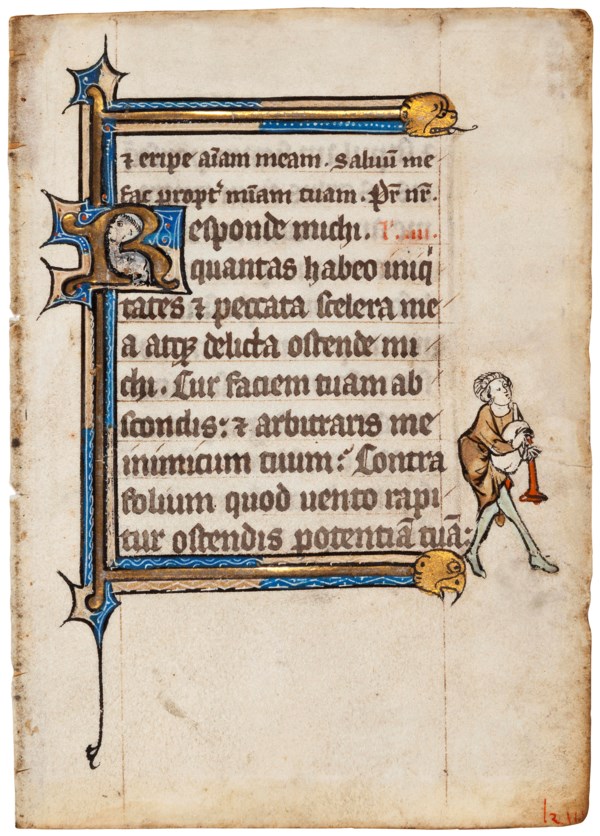 ⁊ eripe aīam meam. Saluū me
fac propt̉ mīam tuam. Pr̄ nr̄.
Responde michi. l'. iiii.
quantas habeo iniq̄
tates ⁊ peccata scelera me
a atqꝫ delicta ostende mi
chi. Cur faciem tuam ab
scondis: ⁊ arbitraris me
inimicum tuum: Contra
folium quod uento rapi
tur ostendis potentiā tuā: